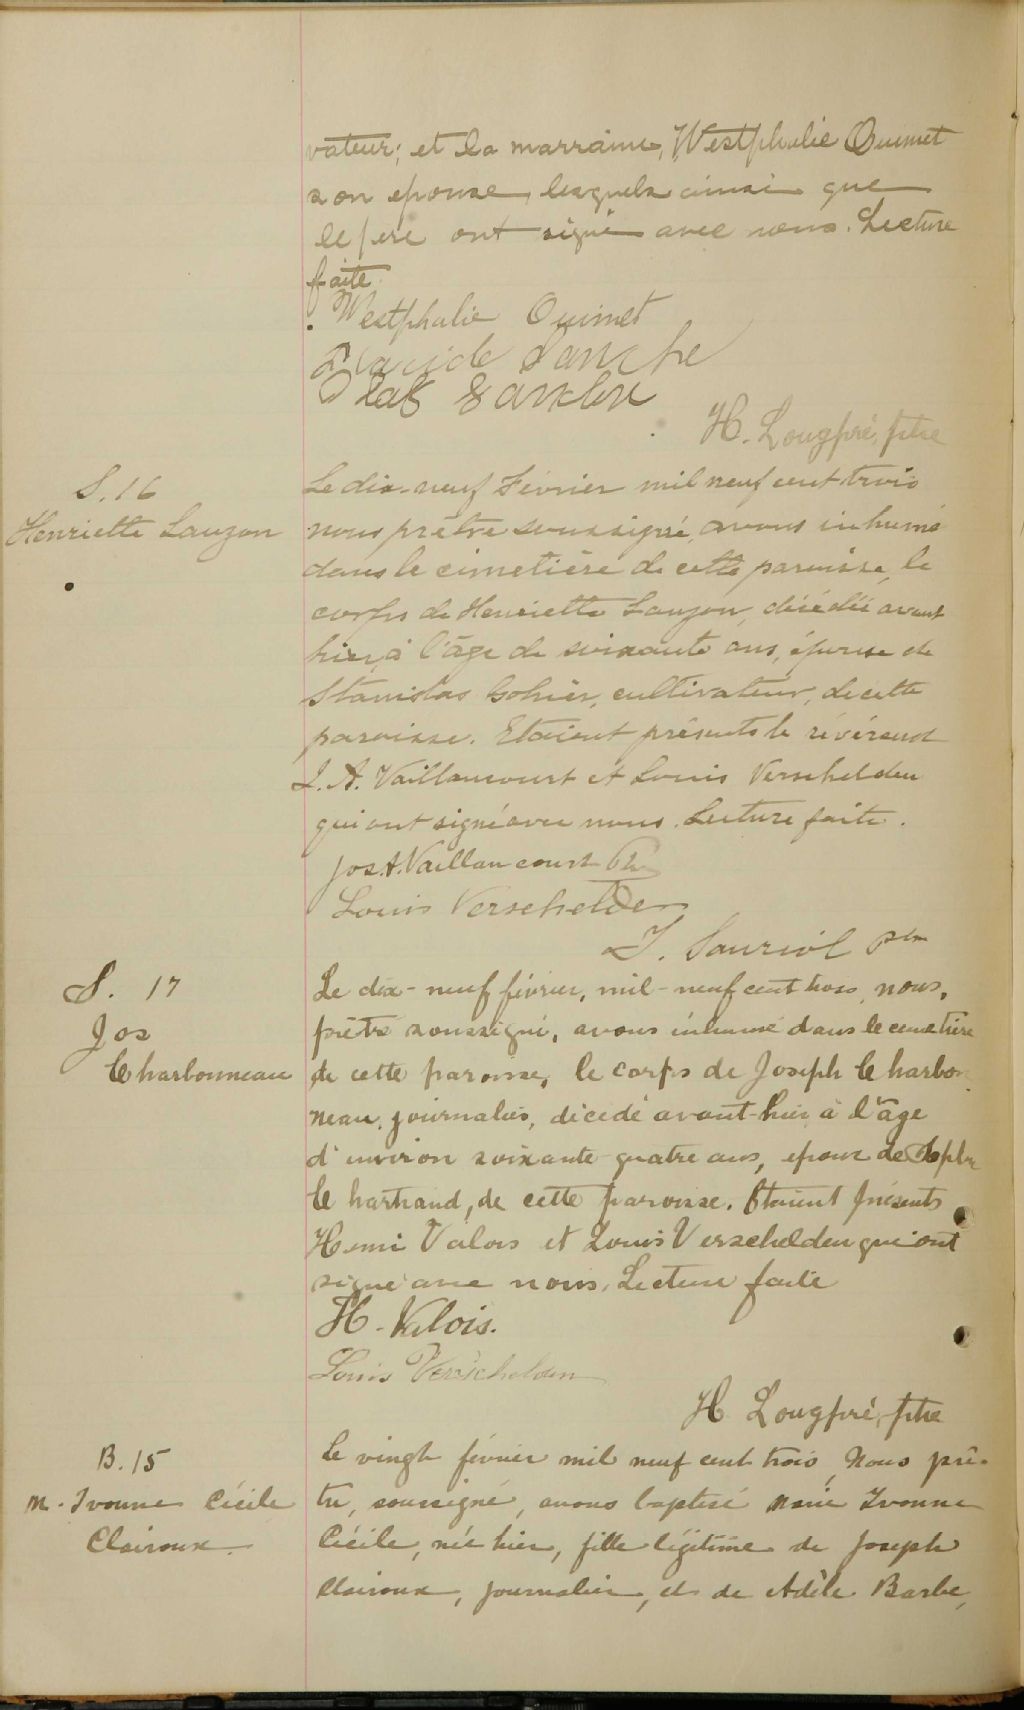 vateur; et la marraine, Westphalie Ouimet
son epouse, lesquels ainsi que
le pere ont signé avec nous. Lecture
faite.
Westphalie Ouimet
H. Longpré, ptre
S. 16
Henriette Lauzon
Le dix-neuf Février mil neuf cent trois
nous prêtre soussigné, avons inhumé
dans le cimetière de cette paroisse, le
corps de Henriette Lauzon, décédée avant
hier, à l'âge de soixante ans, épouse de
Stanislas Gohier, cultivateur, de cette
paroisse. Etaient présents le révérend
J. A. Vaillancourt et Louis Verschelden
qui ont signé avec nous. Lecture faite.
Jos. A. Vaillancourt
Louis Verschelden
J. Sauriol ptre
S. 17
Jos
Charbonneau
Le dix-neuf février, mil-neuf cent trois, nous,
prêtre soussigné, avons inhumé dans le cimetière
de cette paroisse, le corps de Joseph Charbon
neau, journalier, décédé avant-hier à l'âge
d'environ soixante-quatre ans, epoux de
Chartrand, de cette paroisse. Etaient présents
Henri Valois et Louis Verschelden qui ont
signé avec nous. Lecture faite
H. Valois.
Louis Verschelden
H Longpré, ptre
B. 15
M. Ivonne Cécile
Clairoux
Le vingt février mil neuf cent trois, Nous prê-
tre, soussigné, avons baptisé Marie Ivonne
Cécile, née hier, fille légitime de Joseph
Clairoux, journalier, et de Adèle Barbe,